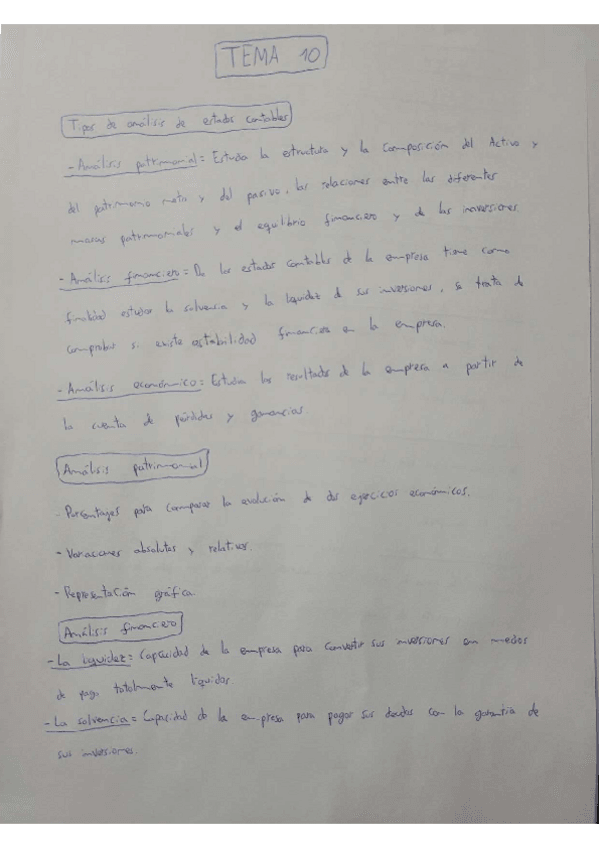 TEMA 10
Tipos de análisis de estados contables
- Análisis patrimonial = Estudia la estructura y la composición del Activo y
del patrimonio neto y del pasivo, las relaciones entre las diferentes
masas patrimoniales y el equilibrio financiero y de las inversiones.
- Análisis financiero = De los estados contables de la empresa tiene como
finalidad estudiar la solvencia y la liquidez de sus inversiones, se trata de
comprobar si existe estabilidad financiera en la empresa.
- Análisis económico = Estudia los resultados de la empresa a partir de
la cuenta de pérdidas y ganancias
Análisis patrimonial
- Porcentajes para comparar la evolución de dos ejercicios económicos.
- Variaciones absolutas y relativas.
- Representación gráfica.
Análisis financiero
- La liquidez = Capacidad de la empresa para convertir sus inversiones en medios
de pago totalmente líquidos.
- La solvencia = Capacidad de la empresa para pagar sus deudas con la garantía de
sus inversiones.